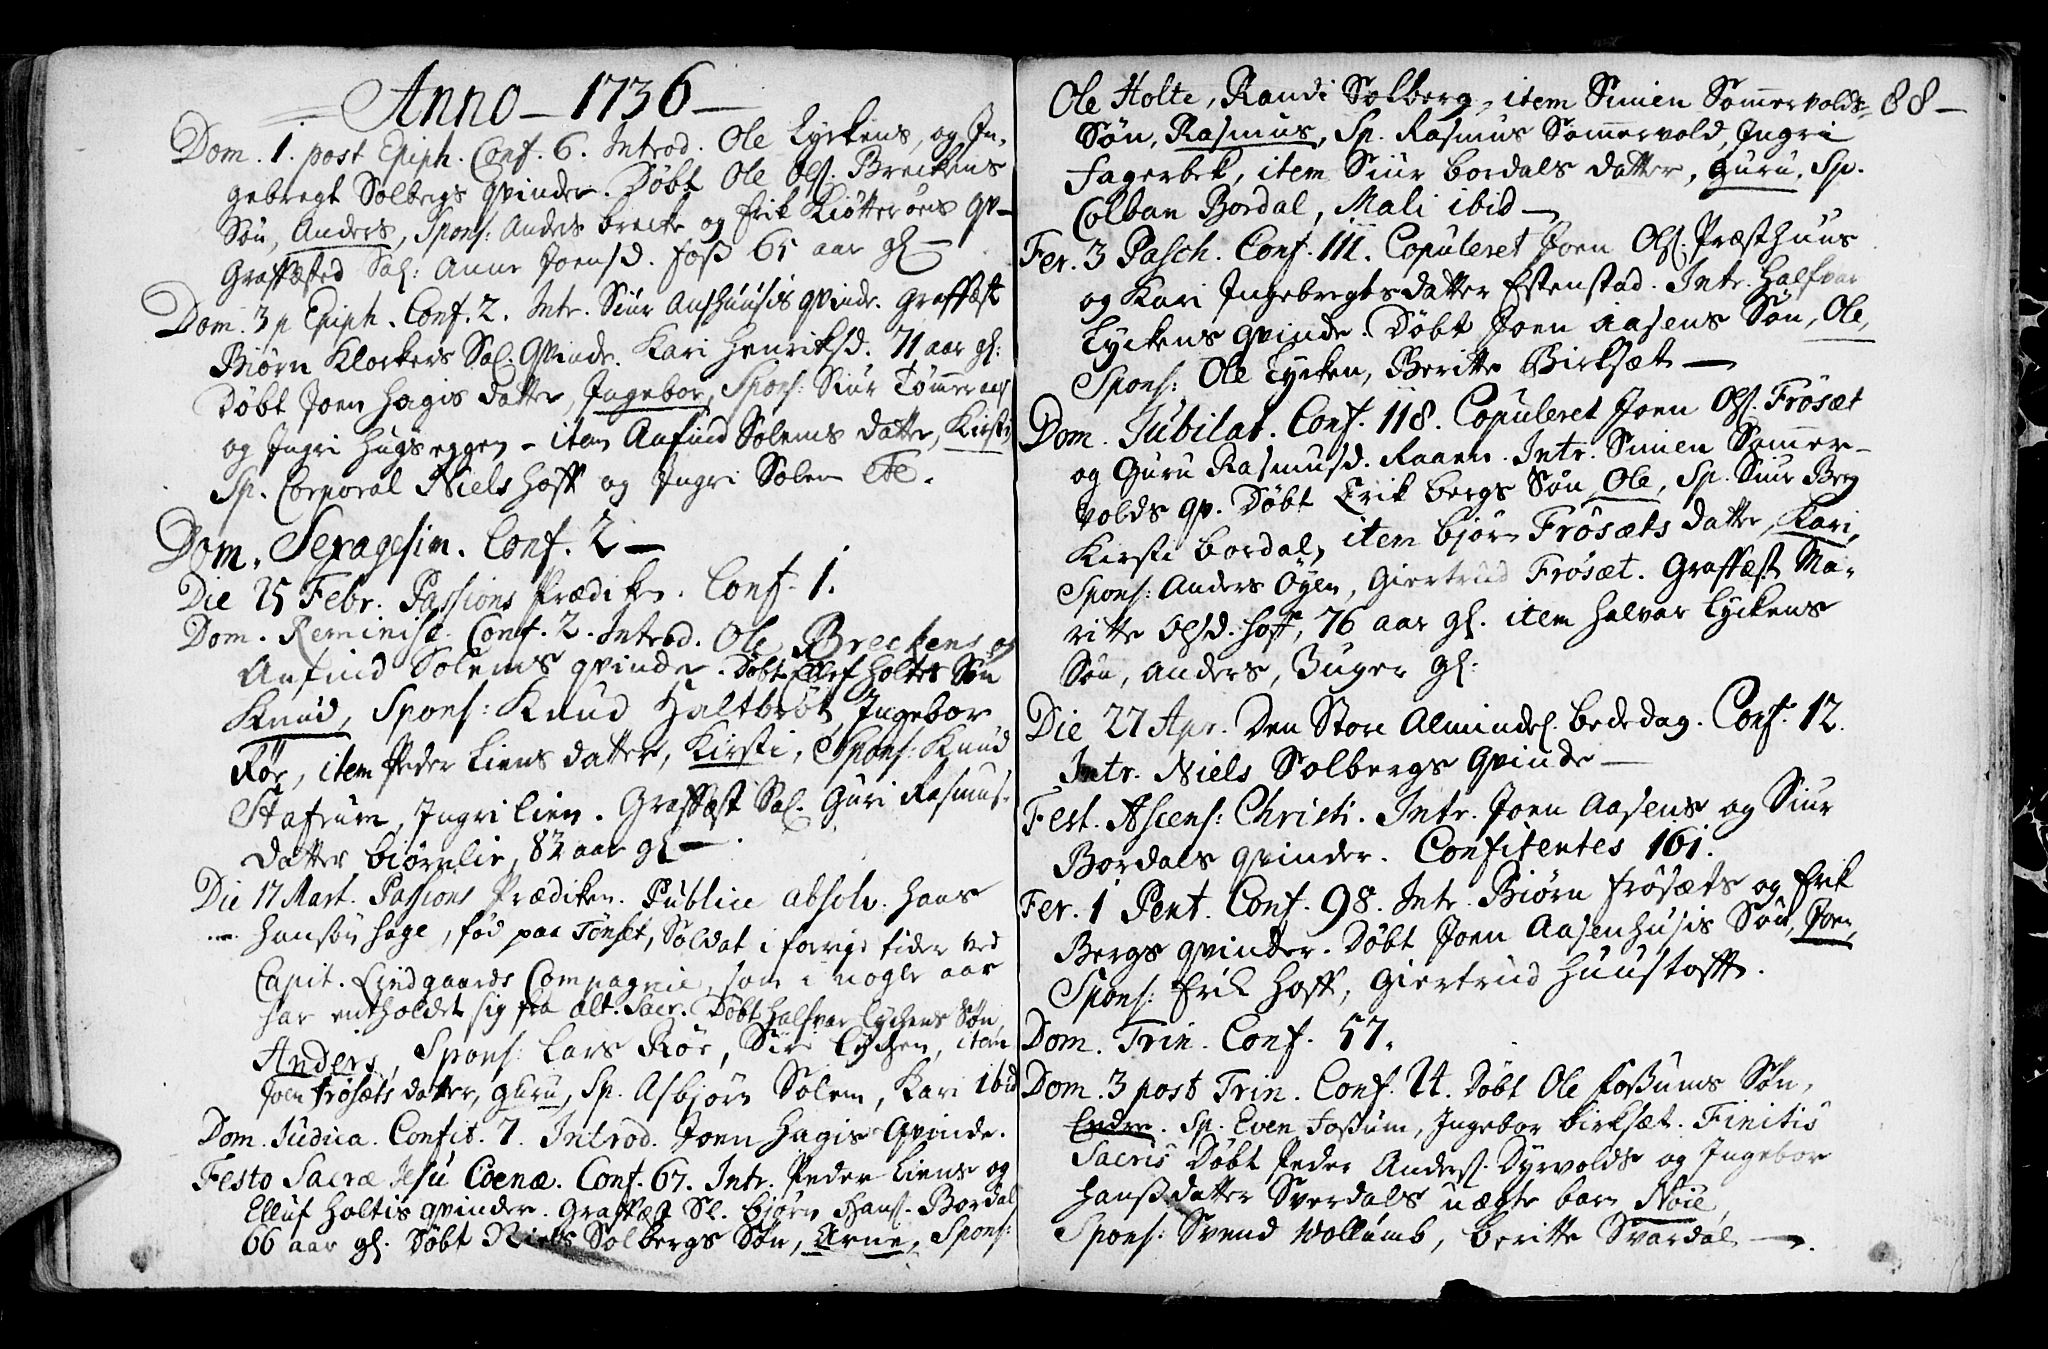 Anno 1736
Dom. 1. post Epiph. Conf. 6. Introd. Ole Lyckens, og In-
gebregt Solbergs qvinder. Døbt Ole Ols. Breckens
Søn, Anders, Spons: Anders brecke og Erik Kiötterøens qv-
Graffæsted Sal: Anne Joensd. foss 65 aar gl
Dom. 3 p Epiph. Conf. 2. Intr. Siur Aushuusis qvinde. Graffæst
Biørn Klockers Sal. Qvinde. Kari Henriksd. 71 aar gl:
Døbt Joen Hagis datter, Ingebor, Spons: Siur
og Ingri Hugseggen - item Anfind Solems datter, Kirsti
Sp. Corporal Niels Hoff og Ingri Solem
Dom. Sexagesim. Conf. 2
Die 25 Febr. Passions Prædiken. Conf. 1.
Dom. Reminisc. Conf. 2. Introd. Ole Breckens og
Anfind Solems qvinder. Døbt Ellef Holtes Søn
Knud, Spons: Knud Haltbröt, Ingebor
Röe, item Peder Liens datter, Kirsti, Spons: Knud
Stafrum, Ingri Lien. Graffæst Sal. Guri Rasmus-
datter biörnlie, 82 aar gl
Die 17 Mart. Passions Prædiken. Publice absolv. Hans
Hansøn Hage, fød paa Tönset, Soldat i forrige tider ved
Capit. Lindgaards Compagnie, som i nogle aar
har entholdet sig fra alt. Sacr. Døbt Halfvar Lyckens Søn,
Anders, Spons: Lars Röe, Siri Lycken, item
Joen Frösæts datter, Guru, Sp. Asbjörn Solem, Kari ibid
Dom. Judica. Confit. 7. Introd. Joen Hagis Qvinde.
Festo Sacræ Jesu Coenæ. Conf. 67. Intr. Peder Liens og
Elluf Holtis qvinder. Graffæst Sl. björn Hans. Bordal
66 aar gl. Døbt Niels Solbergs Søn, Arne, Spons:
88
Ole Holte, Randi Solberg, item Simen Sommervolds
Søn, Rasmus, Sp. Rasmus Sommervold, Ingri
Fagerbek, item Siur bordals datter, Guru, Sp.
Colban Bordal, Mali ibid
Fer. 3 Pasch. Conf. 111. Copuleret Joen Ols. Præsthuus
og Kari Ingebregtsdatter Estenstad. Intr. Halfvar
Lyckens qvinde. Døbt Joen Aasens Søn, Ole,
Spons: Ole Lycken, Beritte Birksæt
Dom. Jubilat. Conf. 118. Copuleret Joen Ols. Frösæt
og Guru Rasmusd. Raaen. Intr. Simen Sommer-
volds qv. Døbt Erik bergs Søn, Ole, Sp. Siur Berg
Kirsti bordal, item bjørn Frösæts datter, Kari,
Spons: Anders Öyen, Giertrud Frösæt. Graffæst Ma-
ritte Olsd. Hoff, 76 aar gl. item Halvar Lyckens
Søn, Anders, 3 uger gl:
Die 27 Apr. Den Store Almindel. bededag. Conf. 12.
Intr. Niels Solbergs Qvinde
Fest. Ascens: Christi. Intr. Joen Aasens og Siur
Bordals qvinder. Confitentes 161.
Fer. 1 Pent. Conf. 98. Intr. Biørn Frösæts og Erik
Bergs qvinder. Døbt Joen Aasenhusis Søn, Joen,
Spons: Erik Hoff, Giertrud Huustofft.
Dom. Trin. Conf. 57.
Dom. 3 post Trin. Conf. 24. Døbt Ole Fossums Søn,
Endre. Sp. Even Fossum, Ingebor birksæt. Finitis
Sacris Døbt Peder Anders. Dyrvolds og Ingebor
Hanssdatter Sverdals uægte barn
Spons: Svend Wollumb, beritte Svardal